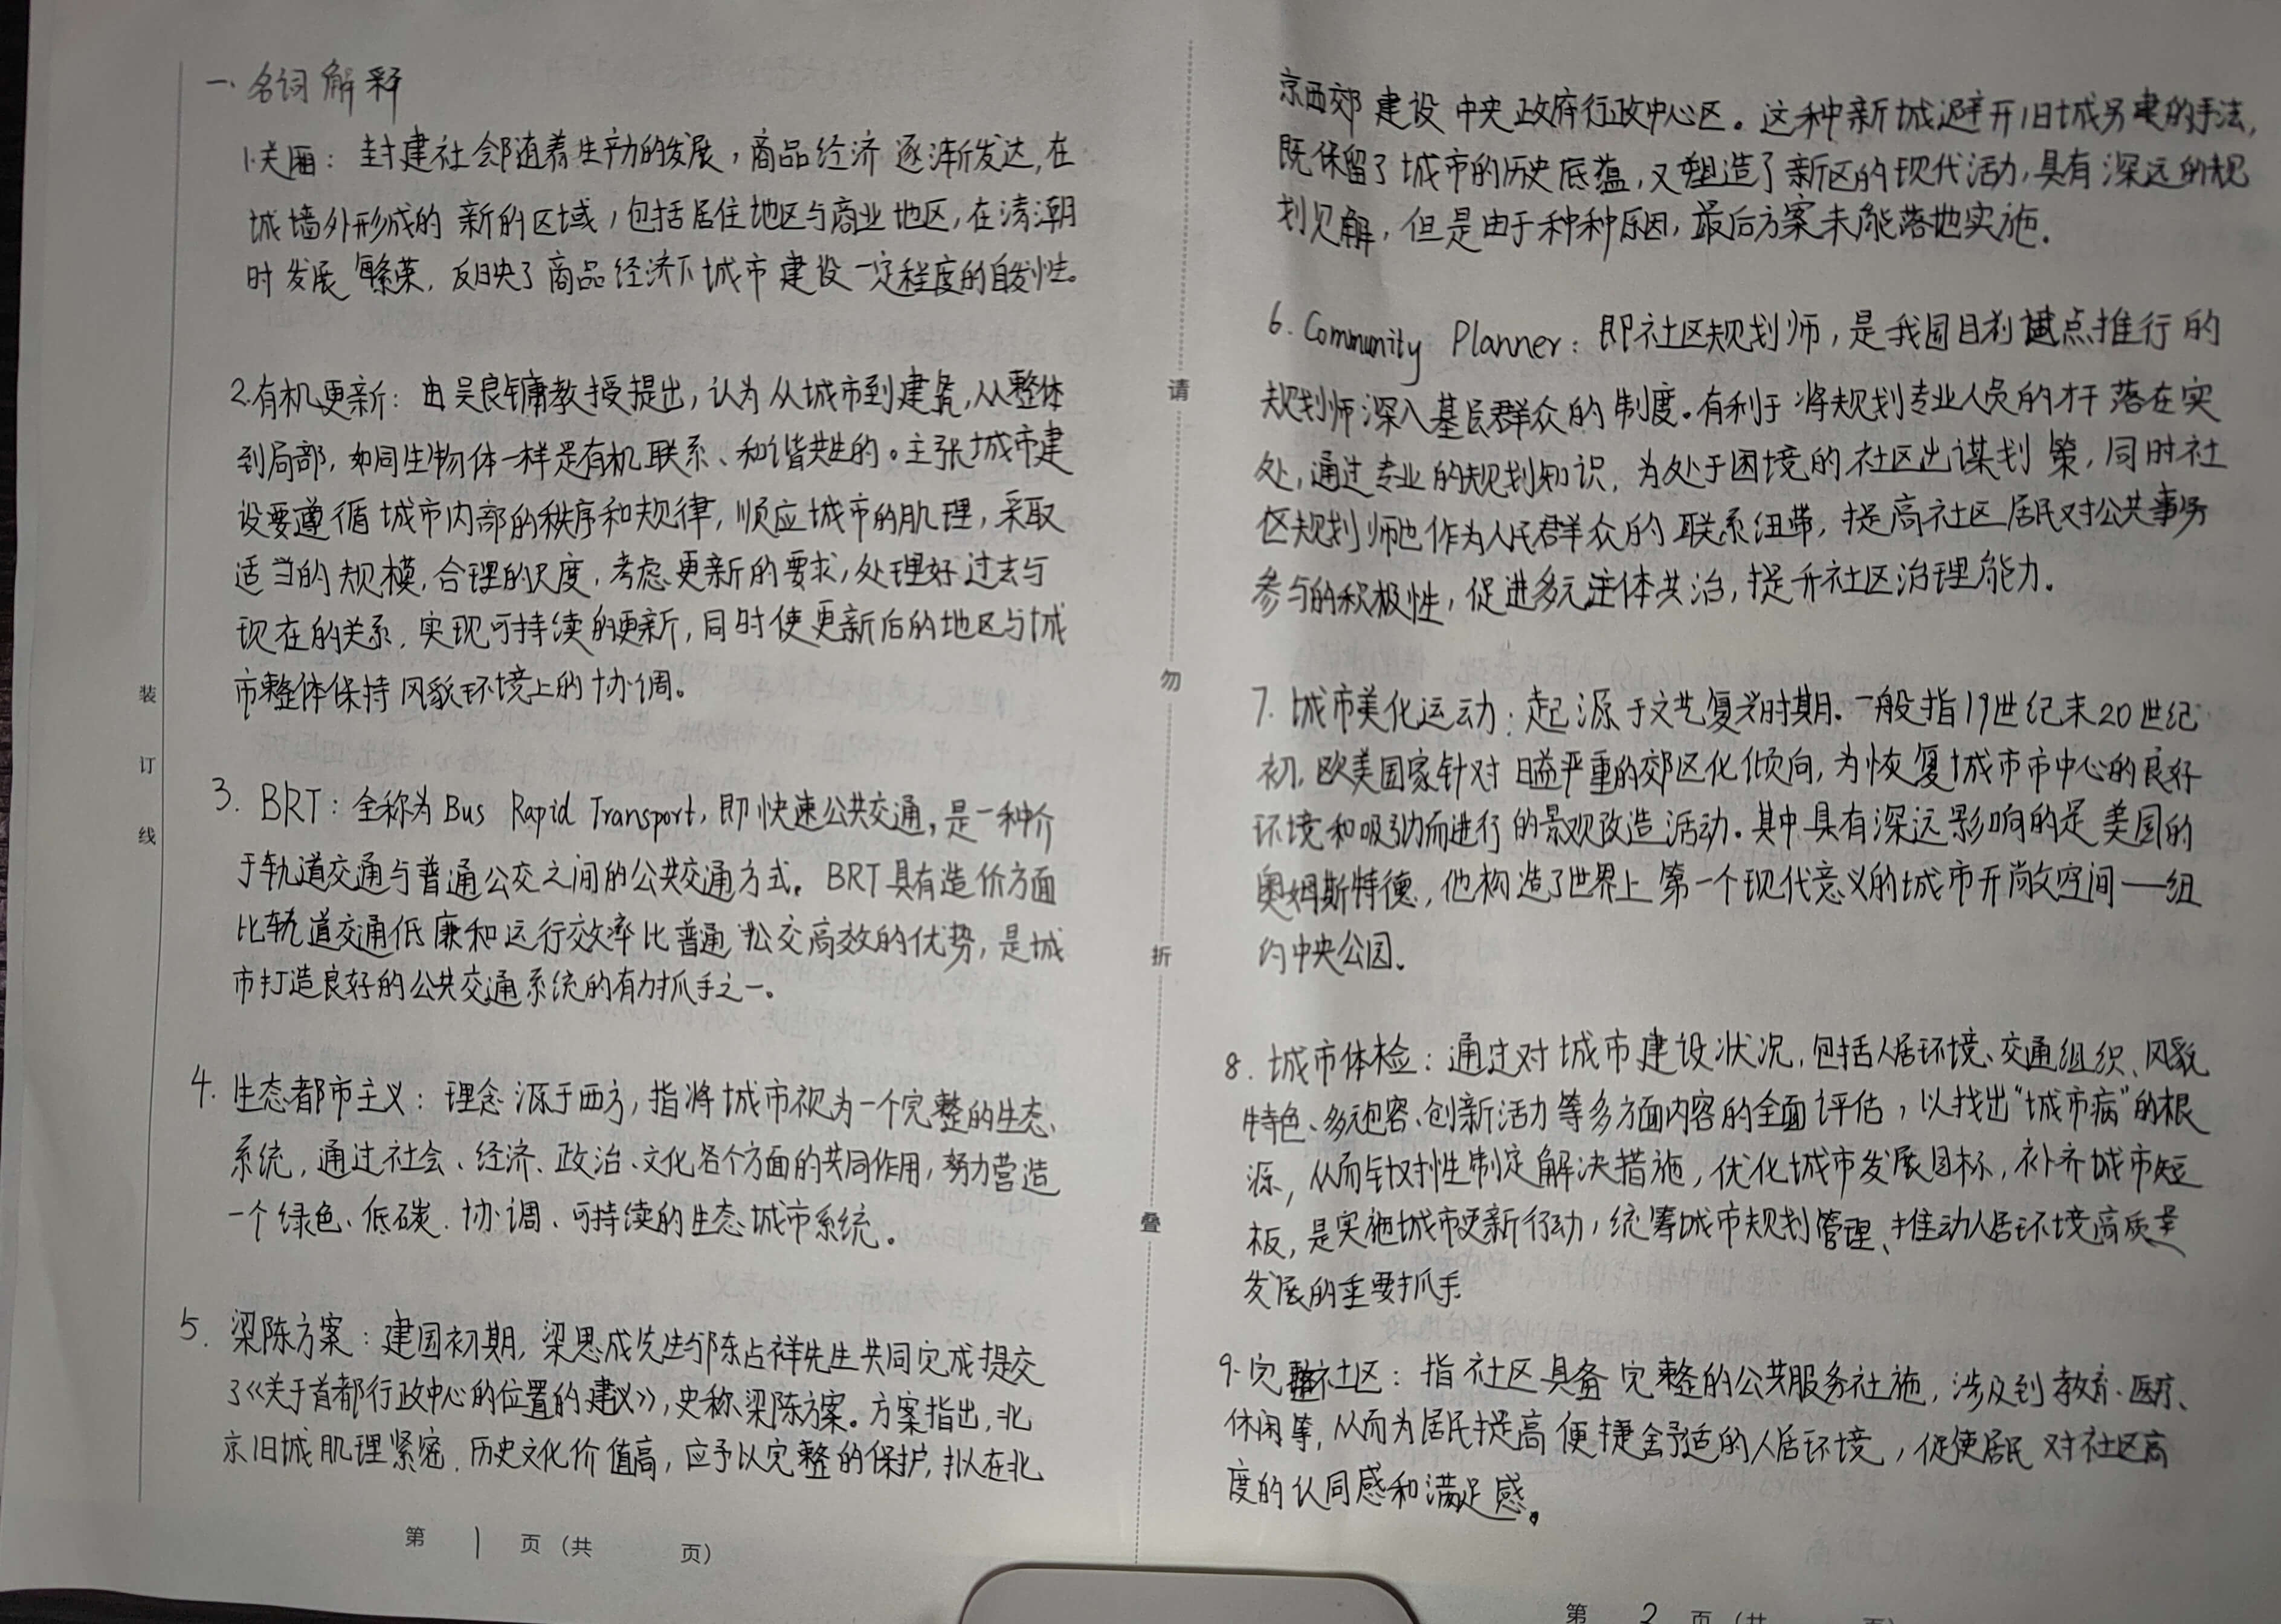 一、名词解释
1.关厢：封建社会随着生产力的发展，商品经济逐渐发达，在
城墙外形成的新的区域，包括居住地区与商业地区，在清潮
时发展繁荣，反映了商品经济下城市建设一定程度的自发性。
2.有机更新：由吴良镛教授提出，认为从城市到建筑，从整体
到局部，如同生物体一样是有机联系、和谐共生的。主张城市建
设要遵循城市内部的秩序和规律，顺应城市的肌理，采取
适当的规模，合理的尺度，考虑更新的要求，处理好过去与
现在的关系，实现可持续的更新，同时使更新后的地区与城
市整体保持风貌环境上的协调。
3. BRT：全称为Bus Rapid Transport，即快速公共交通，是一种介
于轨道交通与普通公交之间的公共交通方式。BRT具有造价方面
比轨道交通低廉和运行效率比普通公交高效的优势，是城
市打造良好的公共交通系统的有力抓手之一。
4. 生态都市主义：理念源于西方，指将城市视为一个完整的生态
系统，通过社会、经济、政治、文化各个方面的共同作用，努力营造
一个绿色、低碳、协调、可持续的生态城市系统。
5. 梁陈方案：建国初期，梁思成先生与陈占祥先生共同完成提交
了《关于首都行政中心的位置的建议》，史称梁陈方案。方案指出，北
京旧城肌理紧密，历史文化价值高，应予以完整的保护，拟在北
第 1 页（共 页）
装
订
线
请
勿
折
叠
京西郊建设中央政府行政中心区。这种新城避开旧城另建的手法，
既保留了城市的历史底蕴，又塑造了新区的现代活力，具有深远的规
划见解，但是由于种种原因，最后方案未能落地实施。
6. Community Planner：即社区规划师，是我国目前试点推行的
规划师深入基层群众的制度。有利于将规划专业人员的才干落在实
处，通过专业的规划知识，为处于困境的社区出谋划策，同时社
区规划师也作为人民群众的联系纽带，提高社区居民对公共事务
参与的积极性，促进多元主体共治，提升社区治理能力。
7. 城市美化运动：起源于文艺复兴时期，一般指19世纪末20世纪
初，欧美国家针对日益严重的郊区化倾向，为恢复城市市中心的良好
环境和吸引力而进行的景观改造活动。其中具有深远影响的是美国的
奥姆斯特德，他构造了世界上第一个现代意义的城市开敞空间——纽
约中央公园。
8. 城市体检：通过对城市建设状况，包括人居环境、交通组织、风貌
特色、多元包容、创新活力等多方面内容的全面评估，以找出“城市病”的根
源，从而针对性制定解决措施，优化城市发展目标，补齐城市短
板，是实施城市更新行动，统筹城市规划管理、推动人居环境高质量
发展的重要抓手
9. 完整社区：指社区具备完整的公共服务社施，涉及到教育、医疗、
休闲等，从而为居民提高便捷舒适的人居环境，促使居民对社区高
度的认同感和满足感。
第 2 页（共 页）